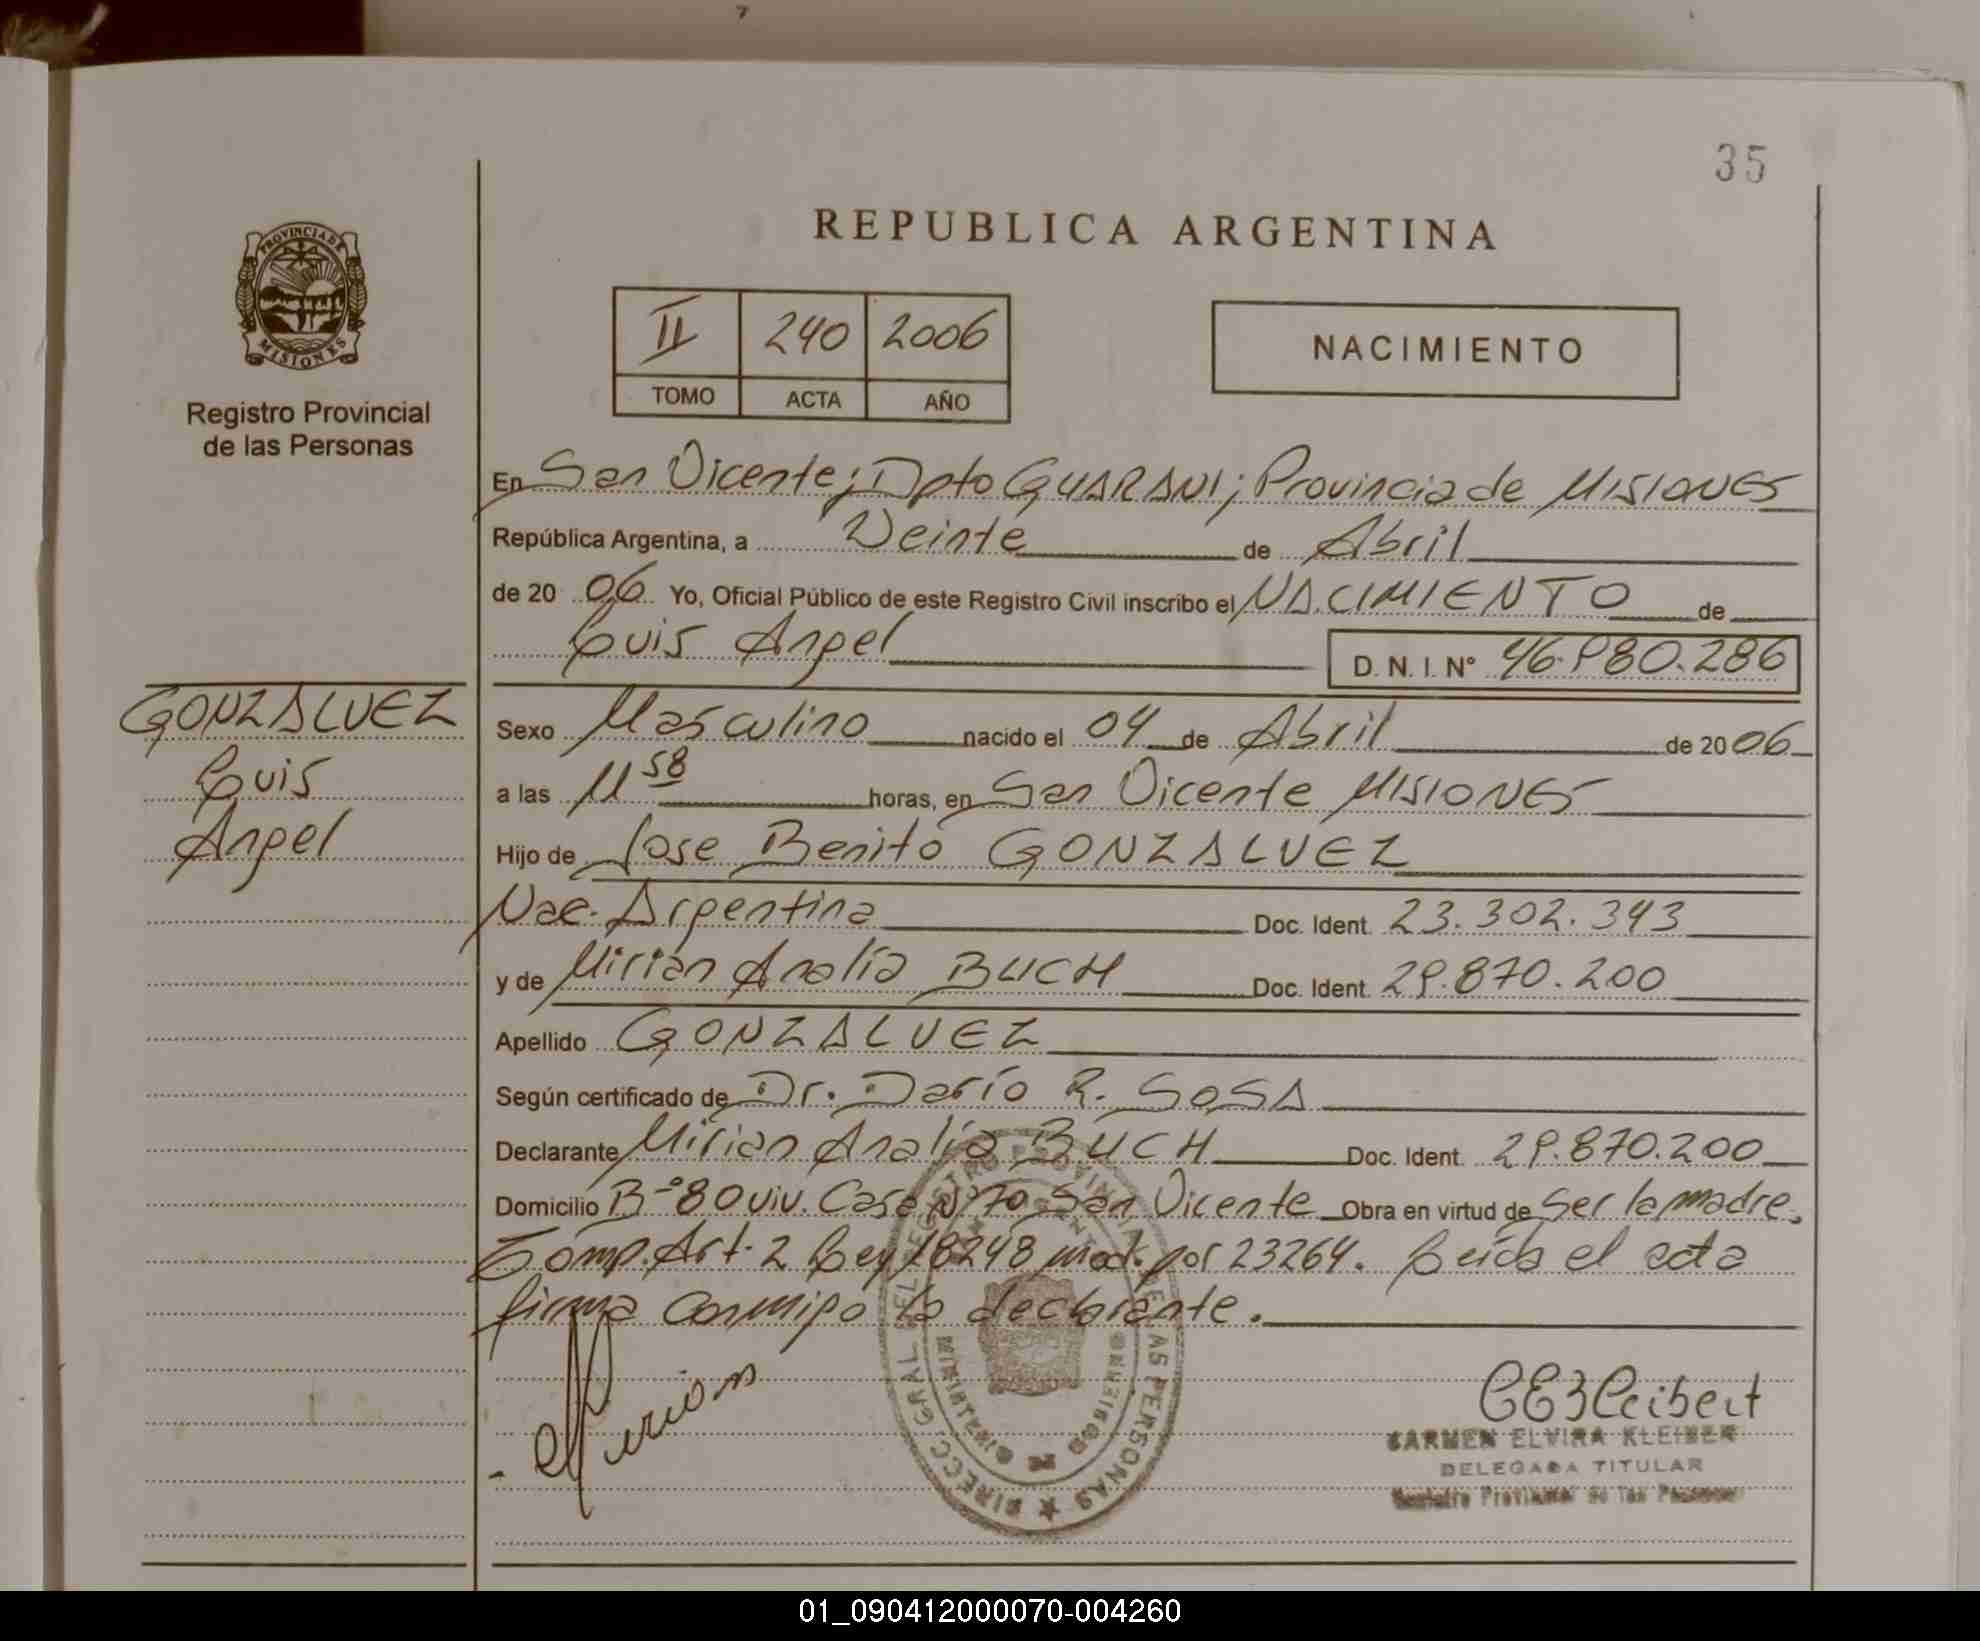 35
REPUBLICA ARGENTINA
PROVINCIA DE
MISIONES
Registro Provincial
de las Personas
II 240 2006
TOMO ACTA AÑO
NACIMIENTO
En San Vicente; Dpto GUARANI; Provincia de MISIONES
República Argentina, a Veinte de Abril
de 20 06 Yo, Oficial Público de este Registro Civil inscribo el NACIMIENTO de
Luis Angel D. N. I. N° 46.980.286
GONZALVEZ
Luis
Angel
Sexo Masculino nacido el 04 de Abril de 20 06
a las 11 58 horas, en San Vicente MISIONES
Hijo de Jose Benito GONZALVEZ
Nac. Argentina Doc. Ident. 23.302.343
y de Mirian Analía BUCH Doc. Ident. 29.870.200
Apellido GONZALVEZ
Según certificado de Dr. Darío R. SOSA
Declarante Mirian Analía BUCH Doc. Ident. 29.870.200
Domicilio B° 80 viv. Casa N° 70 San Vicente Obra en virtud de Ser la madre.
Comp. Art. 2 Ley 18248 mod. por 23264. Leída el acta
firma conmigo la declarante.
Mirian
DIRECC. GRAL DEL REGISTRO PROVINCIAL DE LAS PERSONAS
MINISTERIO DE GOBIERNO
CARMEN ELVIRA KLEIBER
DELEGADA TITULAR
Registro Provincial de las Personas
01_090412000070-004260